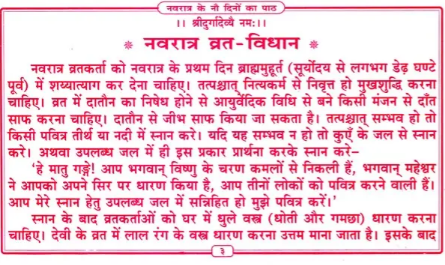 नवरात्र के नौ दिनों का पाठ
।। श्रीदुर्गादेव्यै नमः।।
* नवरात्र व्रत-विधान *
नवरात्र व्रतकर्ता को नवरात्र के प्रथम दिन ब्राह्ममुहूर्त (सूर्योदय से लगभग डेढ़ घण्टे
पूर्व) में शय्यात्याग कर देना चाहिए। तत्पश्चात् नित्यकर्म से निवृत्त हो मुखशुद्धि करना
चाहिए। व्रत में दातौन का निषेध होने से आयुर्वेदिक विधि से बने किसी मंजन से दाँत
साफ करना चाहिए। दातौन से जीभ साफ किया जा सकता है। तत्पश्चात् सम्भव हो तो
किसी पवित्र तीर्थ या नदी में स्नान करे। यदि यह सम्भव न हो तो कुएँ के जल से स्नान
करे। अथवा उपलब्ध जल में ही इस प्रकार प्रार्थना करके स्नान करे–
'हे मातु गङ्गे! आप भगवान् विष्णु के चरण कमलों से निकली हैं, भगवान् महेश्वर
ने आपको अपने सिर पर धारण किया है, आप तीनों लोकों को पवित्र करने वाली हैं।
आप मेरे स्नान हेतु उपलब्ध जल में सन्निहित हो मुझे पवित्र करें।'
स्नान के बाद व्रतकर्ताओं को घर में धुले वस्त्र (धोती और गमछा) धारण करना
चाहिए। देवी के व्रत में लाल रंग के वस्त्र धारण करना उत्तम माना जाता है। इसके बाद
३